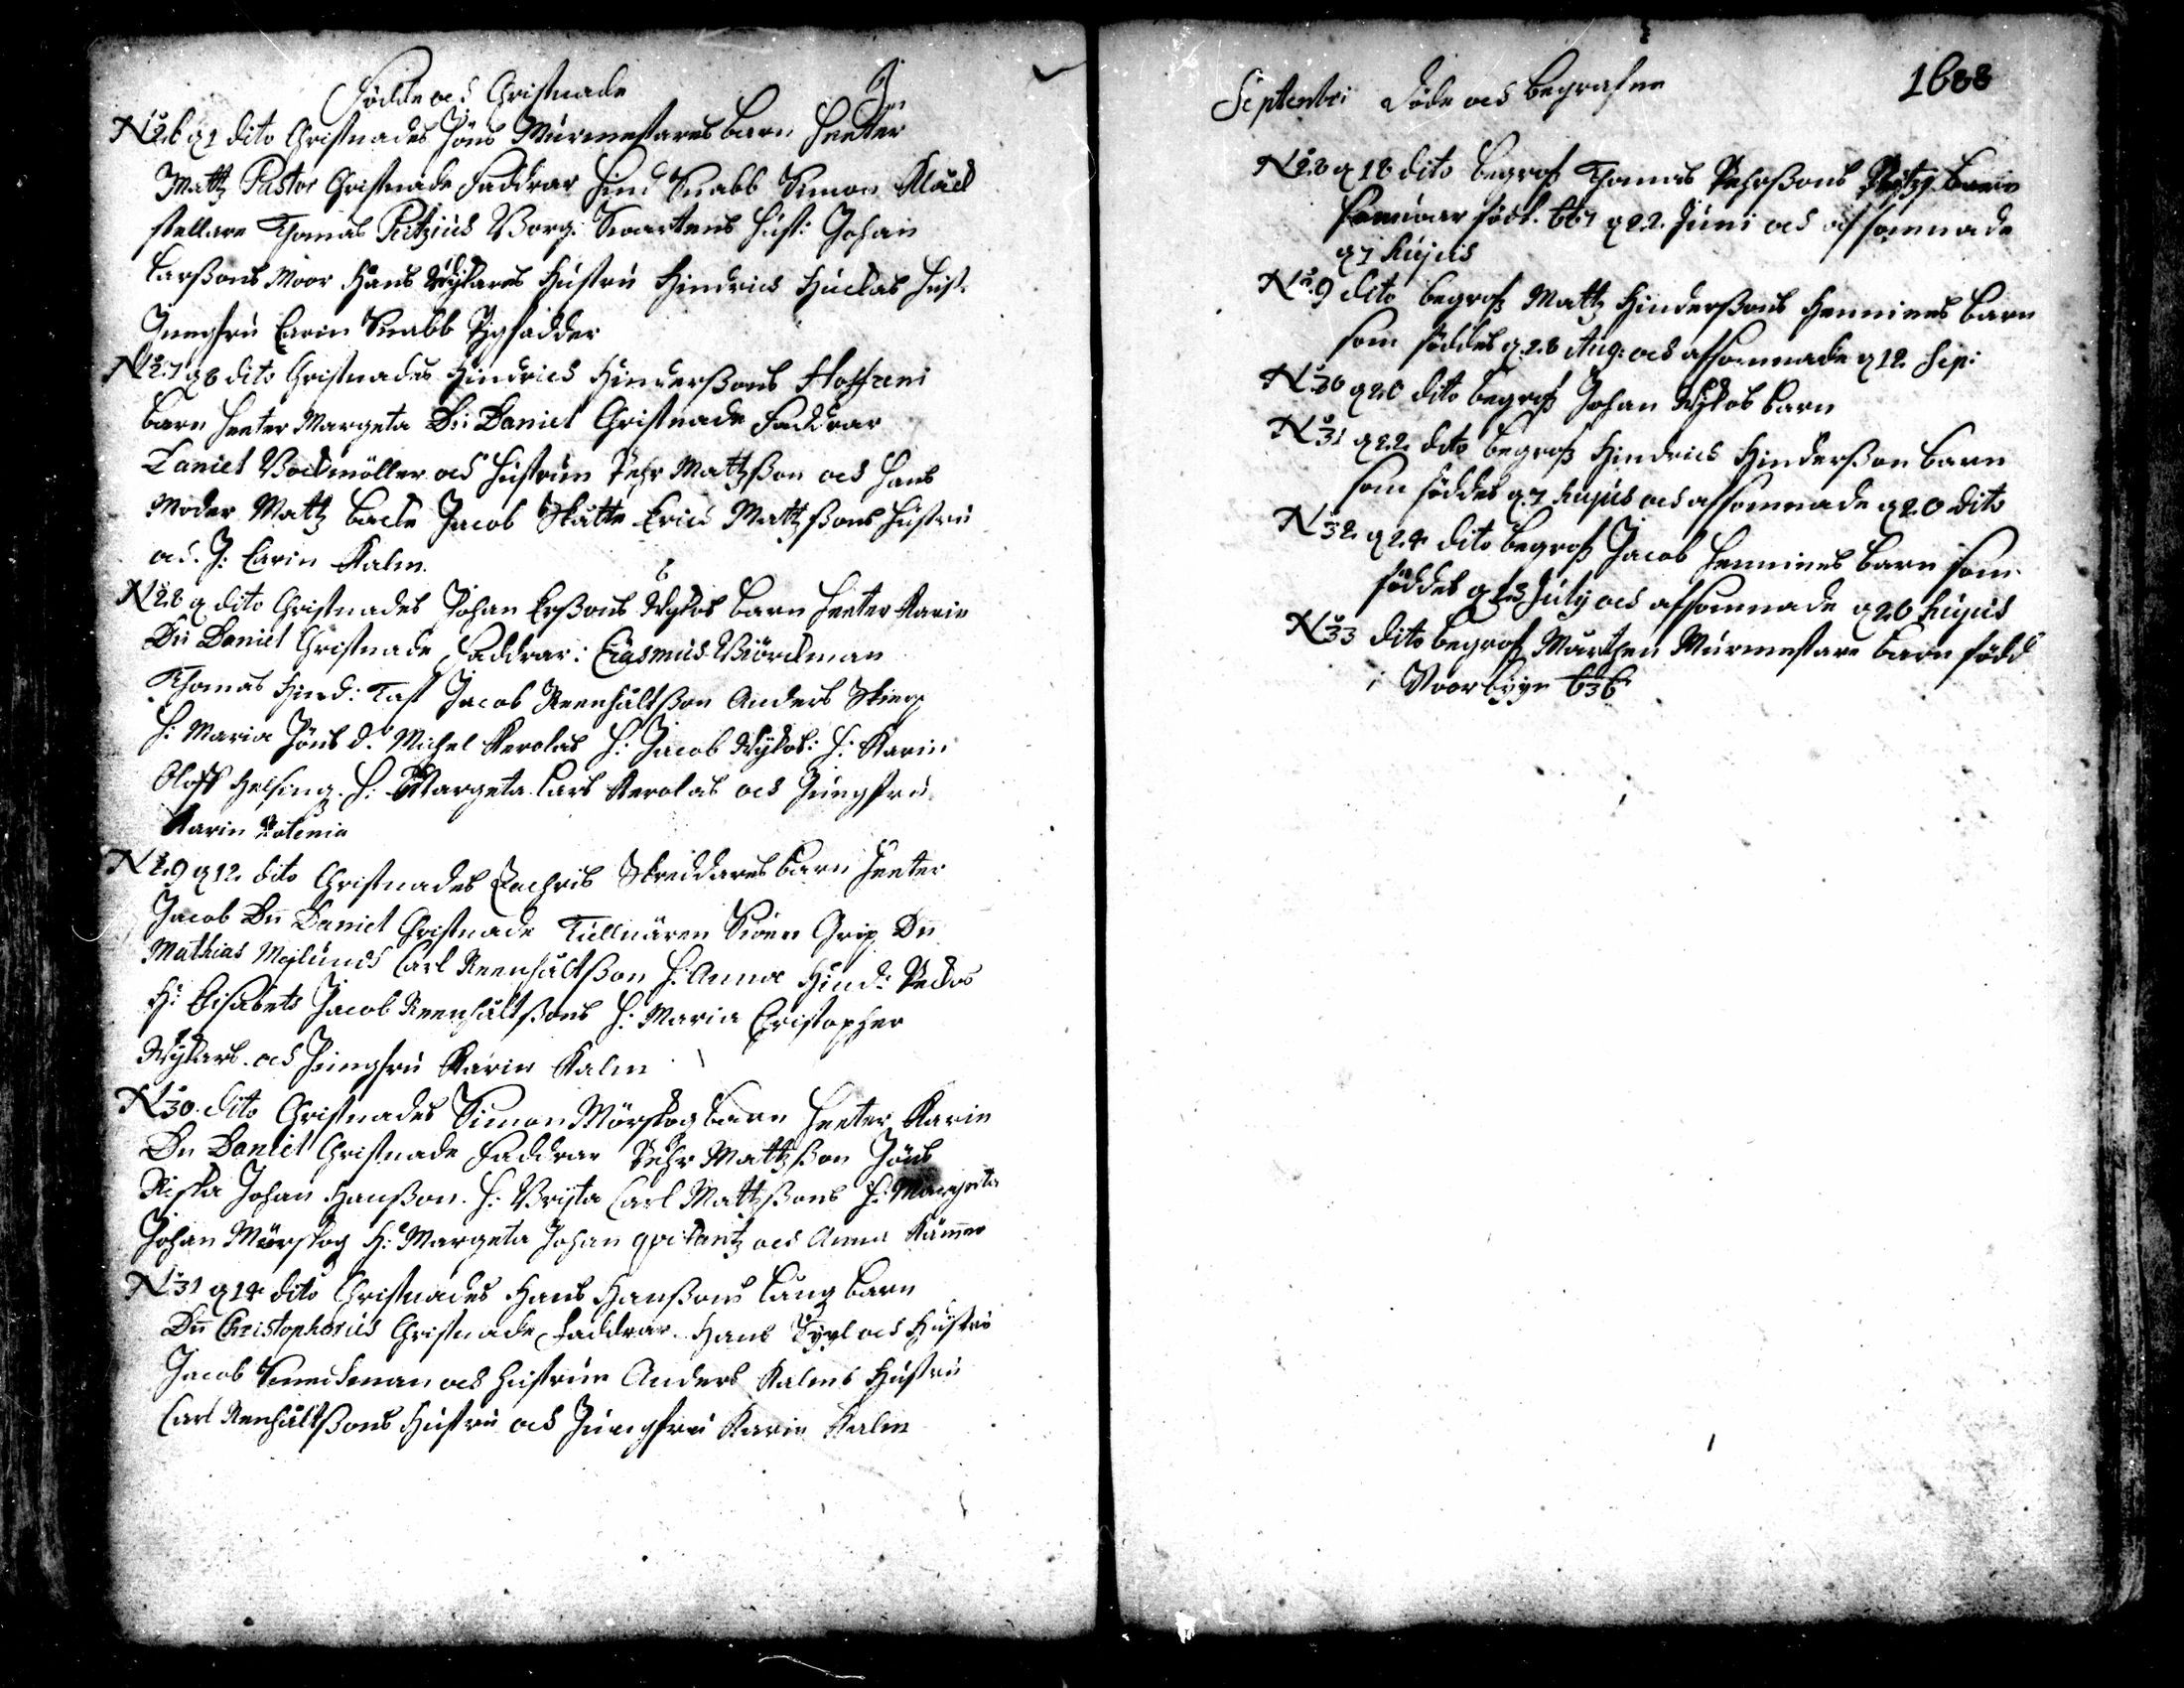 Födde och Christnade
N:o 26 q 1 dito Christnades Jöns Murmestares barn heeter
Mattz Pastor Christnade Faddrar Hind Knabb Simon Klåck
stellare Thomas Petzius Borg: Swartens hust: Johan
Larßons Moor Hans Wijkars Hustru Hindrich Huckas hust:
Jungfru Carin Knabb
N:o 27 q 8 dito Christnades Hindrich Hinderßons Hoffreni
barn heeter Margeta D: Daniel Christnade Faddrar
Daniel Bockmöller och hustrun Pehr Mattzßon och hans
Moder Mattz Backe Jacob Skatte Erich Mattzßons hustru
och J: Carin Kalm
N:o 28 q dito Christnades Johan Erßons barn heeter Karin
Dn Daniel Christnade Faddrar: Erasmus Biörckman
Thomas Hind: Tast Jacob Reenhåltßon Anders
H: Maria Jöns d. Michel Kerolas H: Jacob H: Karin
Oloff Helsing. H: Margeta Lars Kerolas och Jungfru
Karin
N:o 29 q 12 dito Christnades Zachris Skreddares barn heeter
Jacob Dn Daniel Christnade Tullnären Swen Grip Dn
Mathias Carl Reenhåltßon H: Anna Hind:
H: Elisabets Jacob Reenhåltßons H: Maria Christopher
och Jungfru Karin Kalm
N:o 30 dito Christnades Simon Mörskog barn heeter Karin
Dn Daniel Christnade Faddrar Pehr Mattzßon Jöns
Johan Hanßon. H: Brijta Carl Mattzßons H: Margeta
Johan Mörskog H: Margeta Johan och Anna
N:o 31 q 14 dito Christnades Hans Hanßons Lång barn
Dn Christophorus Christnade Faddrar Hans och Hustru
Jacob och hustrun Anders Kalms hustru
Carl Renhåltßons hustru och Jungfru Karin Kalm
Septembri Döde och begrafne 1688
N:o 28 q 18 dito begrofz Thomas Pehrßons barn
född. q 22 Juni och afsomnade
q 7 hujus
N:o 29 dito begrofz Mattz Hinderßons Hennines barn
som föddes q 28 Aug: och afsomnade q 12 Sep:
N:o 30 q 20 dito begrofz Johan barn
N:o 31 q 22 dito begrofz Hindrich Hinderßon barn
som föddes q 7 hujus och afsomnade q 20 dito
N:o 32 q 24 dito begrofz Jacob Hennines barn som
föddes q Julij och afsomnade q 20 hujus
N:o 33 dito begrofz Mårthen Murmestare barn född
i